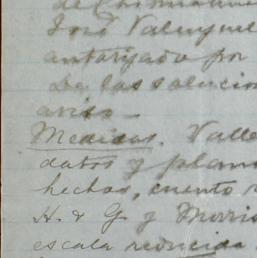 de Chihuahua
José Valenzuel
autorizado por
de las solucion
aviso—
Medidas. Valle
datos y plano
hechos, cuento
H. & G. y Morris
escala reducida